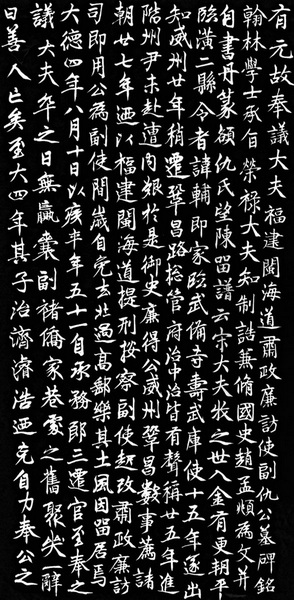 有元故奉議大夫福建閩海道肅政廉訪使副仇公墓碑銘
翰林學士承旨榮祿大夫知制誥兼脩國史趙孟頫為文并
自書丹篆額仇氏望陳留譜云宋大夫牧之世入金有更朔平
臨潢二縣令者諱輔即家臨武脩寺壽武庫使十五年遂出
知威州廿年稍遷鞏昌路捴管府治中治皆有聲稱廿五年進
階州尹未赴遭內艱於是御史廉得公威州鞏昌數事薦諸
朝廿七年迺以福建閩海道提刑按察副使起改肅政廉訪
司即用公為副使閒歲自免去北過高郵樂其土風因留居焉
大德四年八月十日以疾卒年五十一自承務郎三遷官至奉
議大夫卒之日無贏囊副褚僑家巷處之舊聚哭一辭
曰善人亡矣至大四年其子治濟濬浩迺克自力奉公之